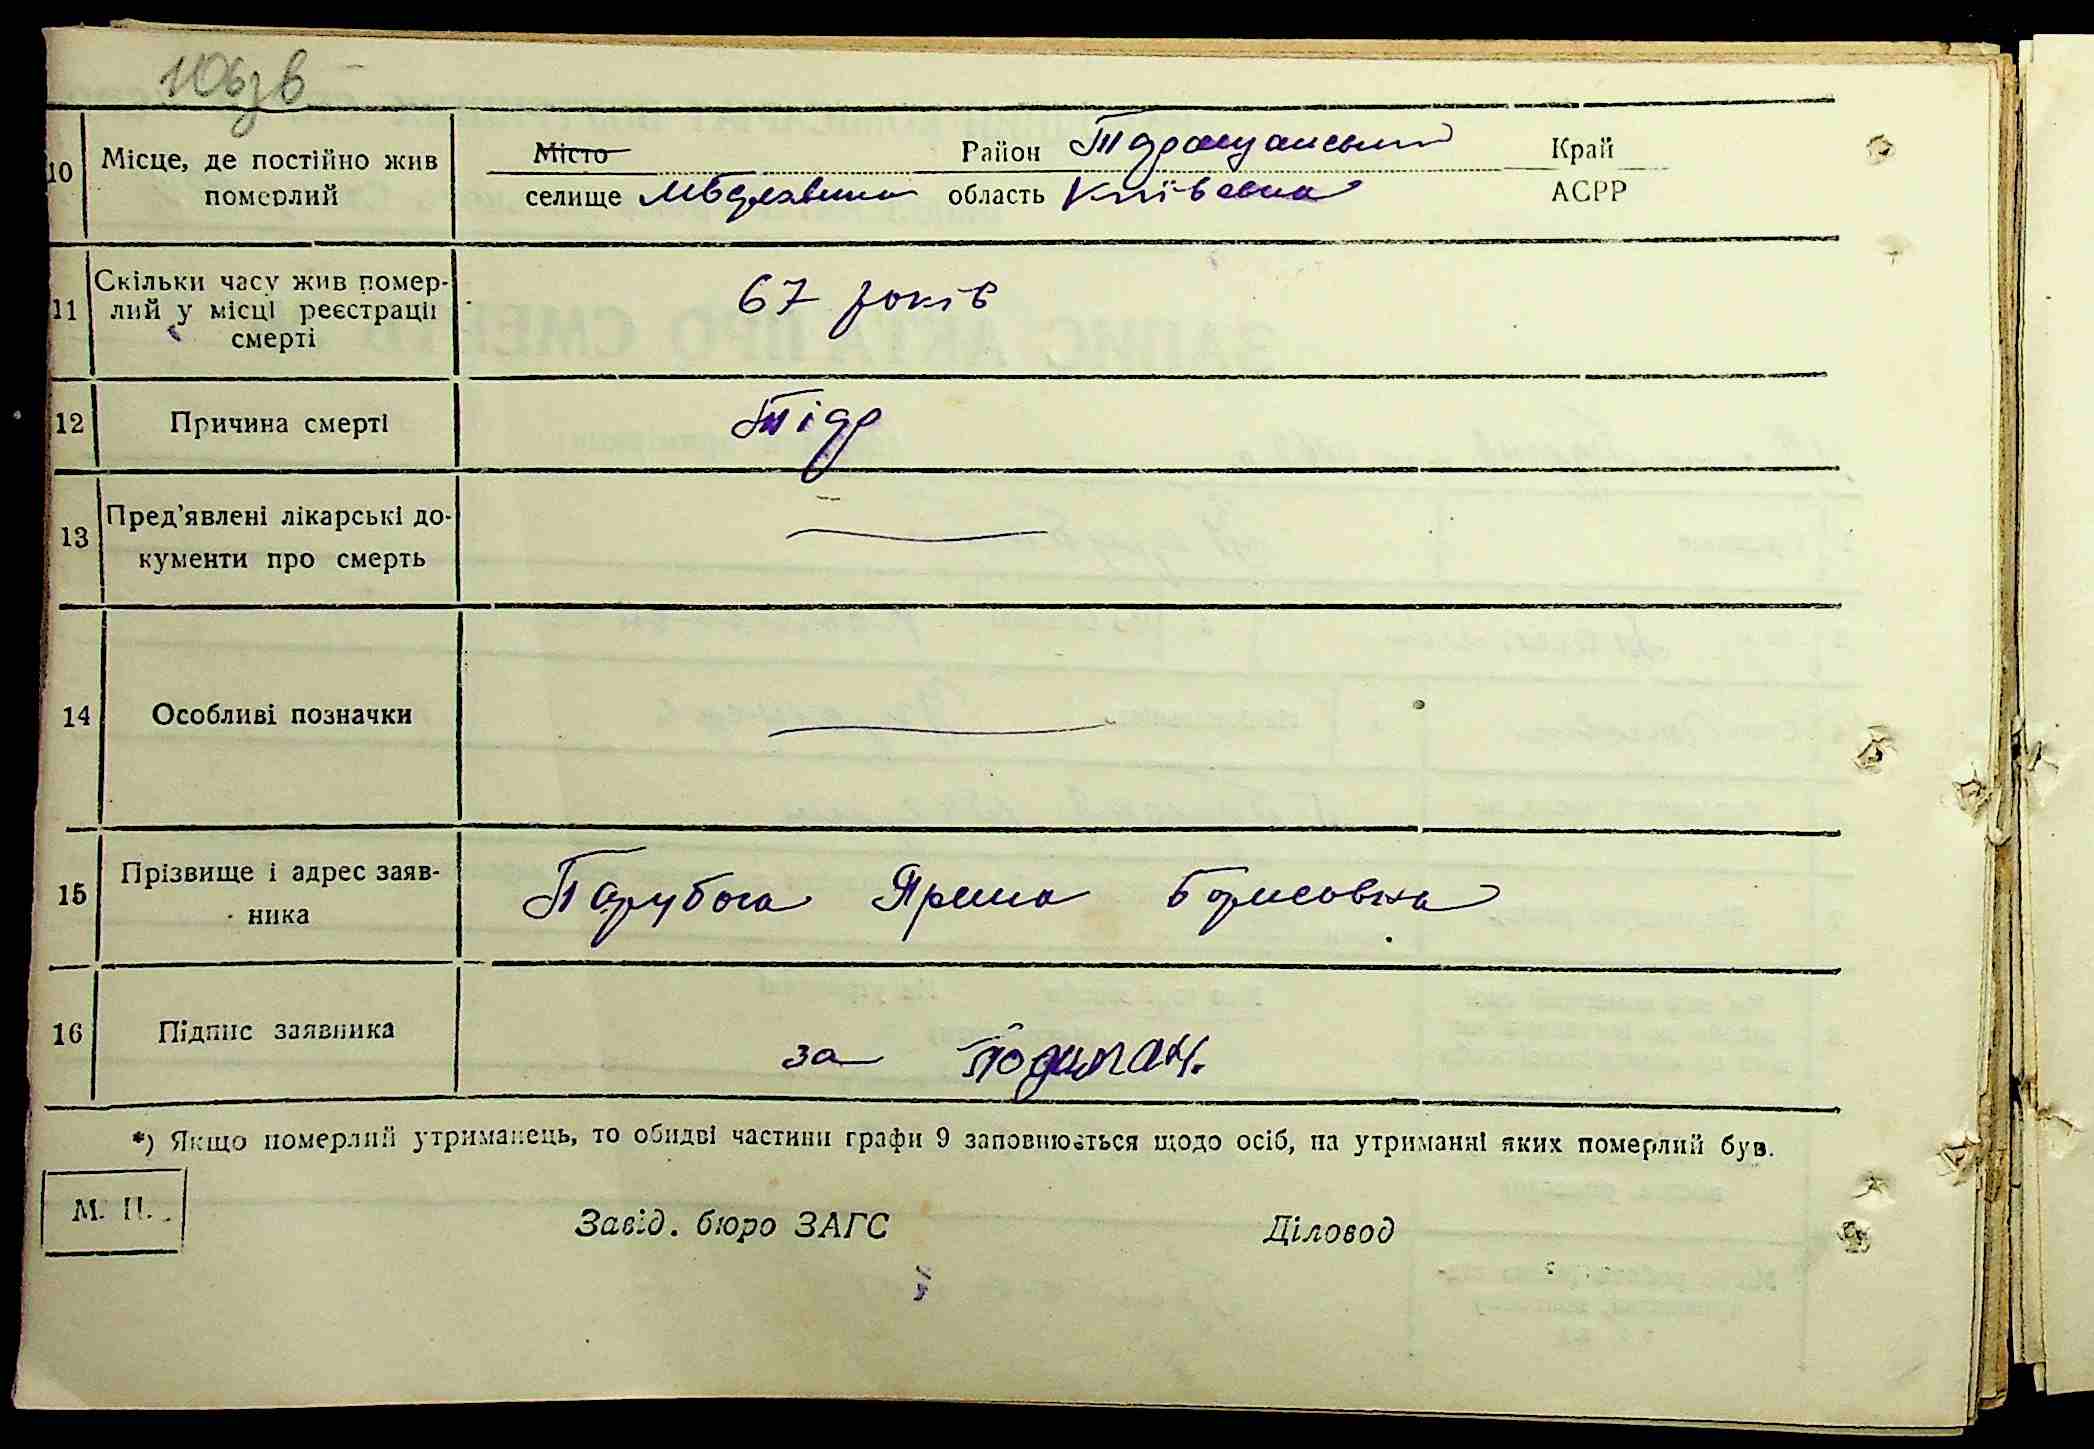 106зв
10 Місце, де постійно жив померлий
Місто Район Таращанський Край
селище область Київська АСРР
11 Скільки часу жив помер-
лий у місці реєстрації
смерті
67 років
12 Причина смерті
13 Пред'явлені лікарські до-
кументи про смерть
14 Особливі позначки
15 Прізвище і адрес заяв-
ника
Борисовна
16 Підпис заявника
за
*) Якщо померлий утриманець, то обидві частини графи 9 заповнюється щодо осіб, на утриманні яких померлий був.
М. П.
Завід. бюро ЗАГС Діловод